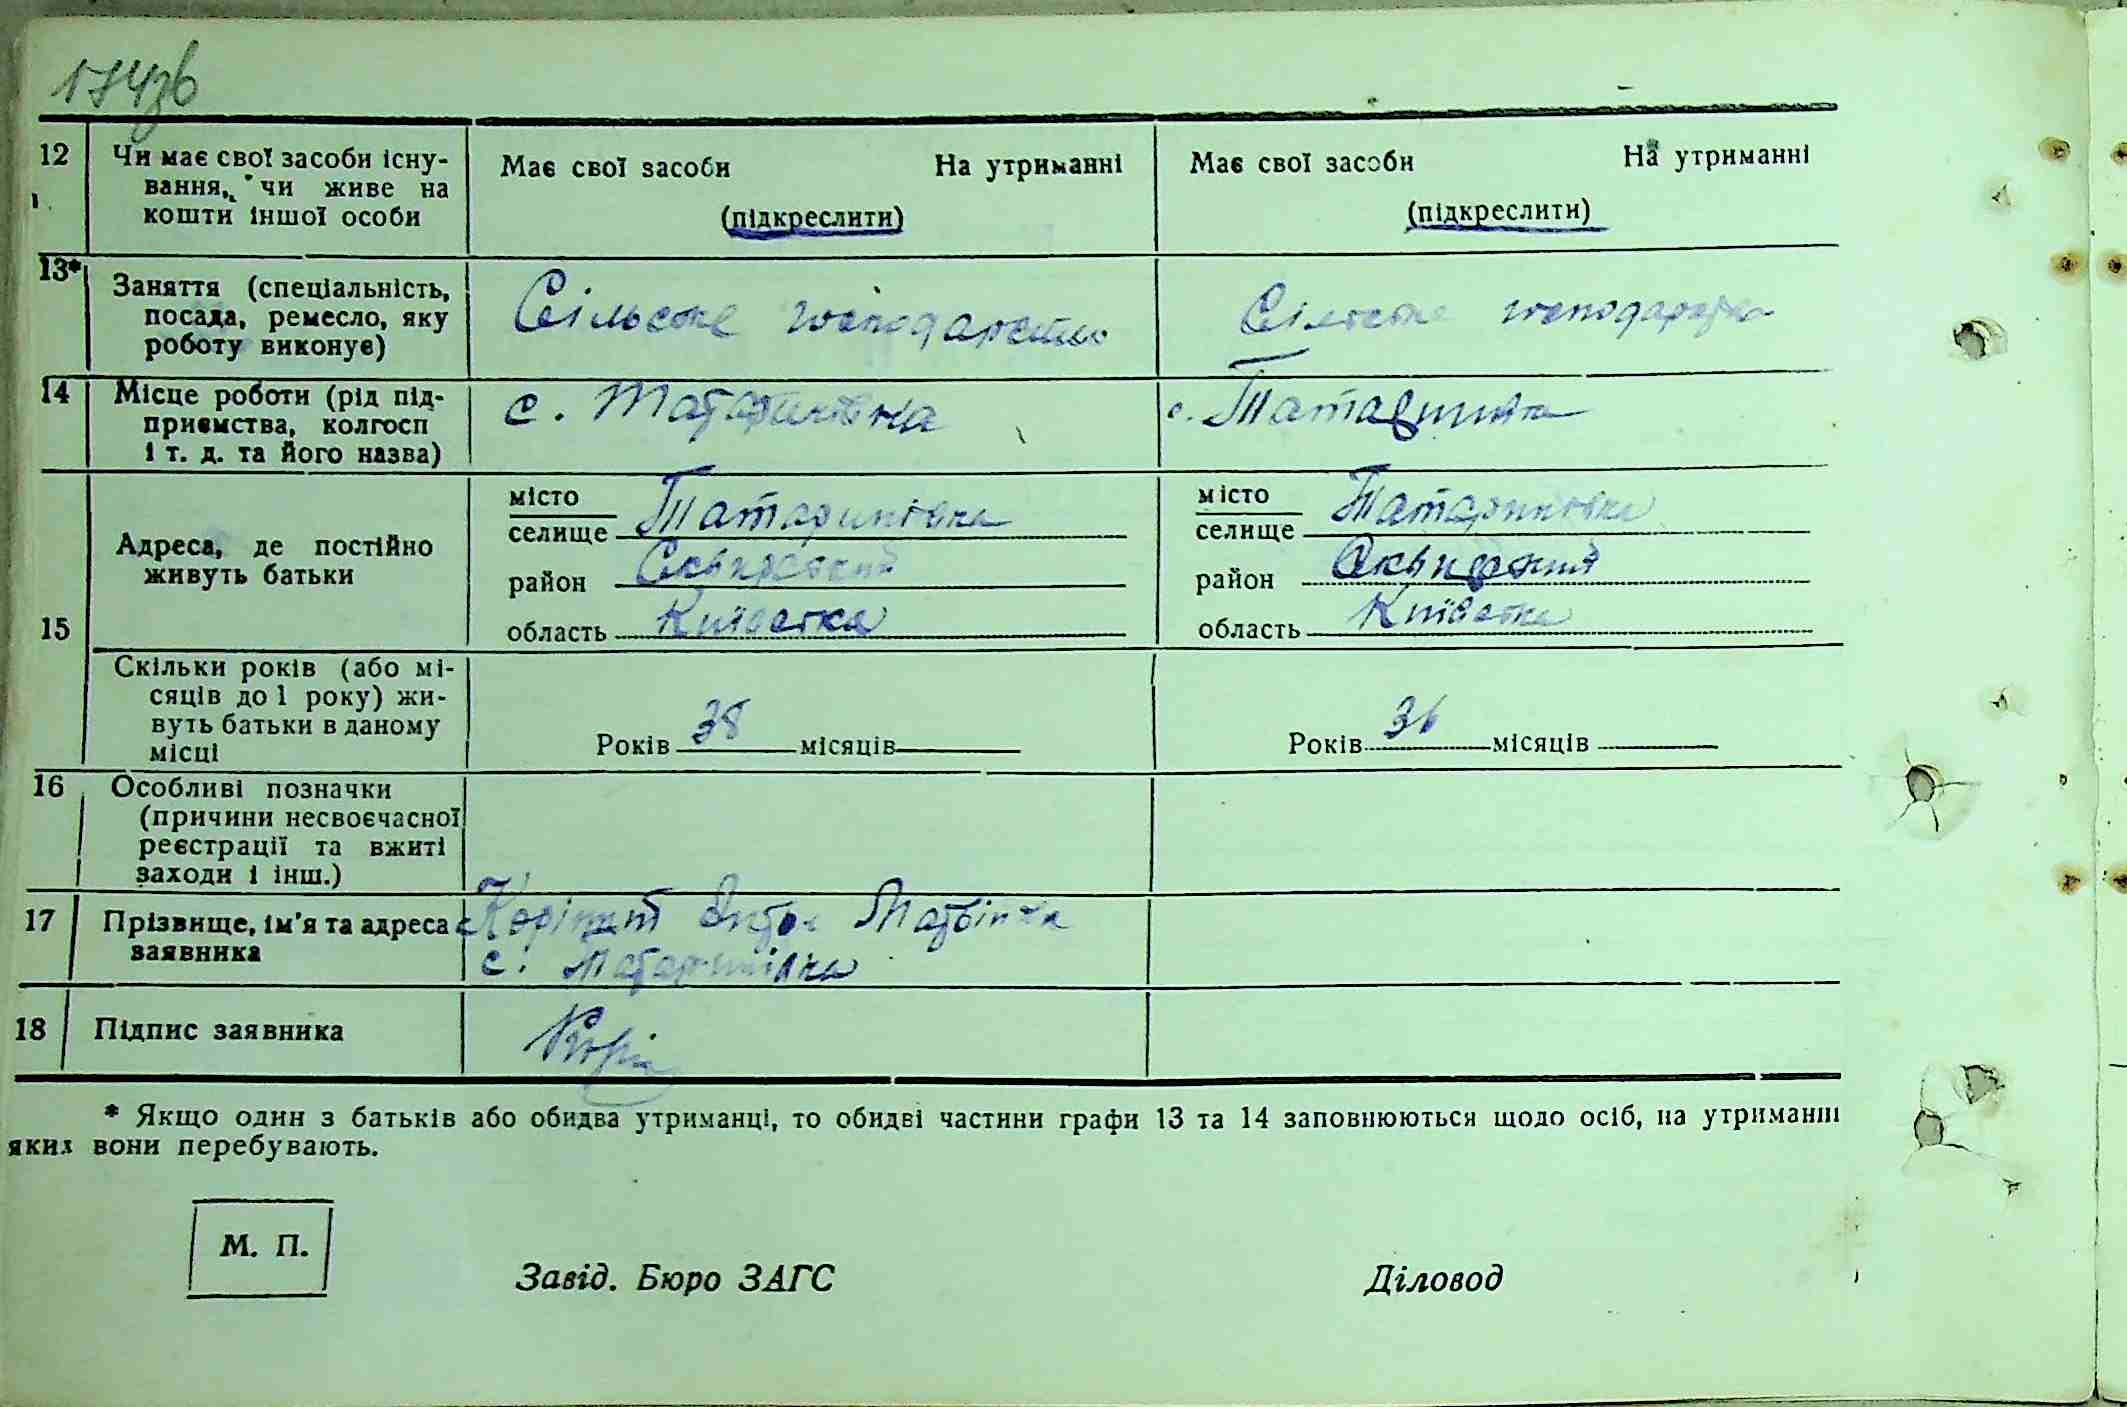 174зв
12 Чи має свої засоби існу- Має свої засоби На утриманні Має свої засоби На утриманні
вання, чи живе на
кошти іншої особи (підкреслити) (підкреслити)
13* Заняття (спеціальність, Сільське господарство Сільське господарство
посада, ремесло, яку
роботу виконує)
14 Місце роботи (рід під- с. Татаринівка с. Татаринівка
приємства, колгосп
і т. д. та його назва)
15 Адреса, де постійно живуть батьки
місто
селище Татаринівка
район Сквирский
область Київська
місто
селище Татаринівка
район Сквирский
область Київська
Скільки років (або мі-
сяців до 1 року) жи-
вуть батьки в даному
місці
Років 38 місяців Років 36 місяців
16 Особливі позначки
(причини несвоєчасної
реєстрації та вжиті
заходи і інш.)
17 Прізвище, ім'я та адреса
заявника
Антон
с. Татаринівка
18 Підпис заявника
* Якщо один з батьків або обидва утриманці, то обидві частини графи 13 та 14 заповнюються щодо осіб, на утриманні
яких вони перебувають.
М. П.
Завід. Бюро ЗАГС Діловод